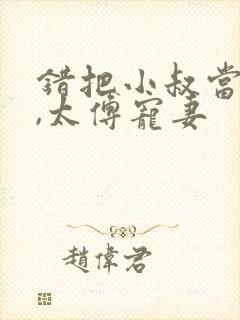 錯把小叔當
,太傅寵妻
趙偉君